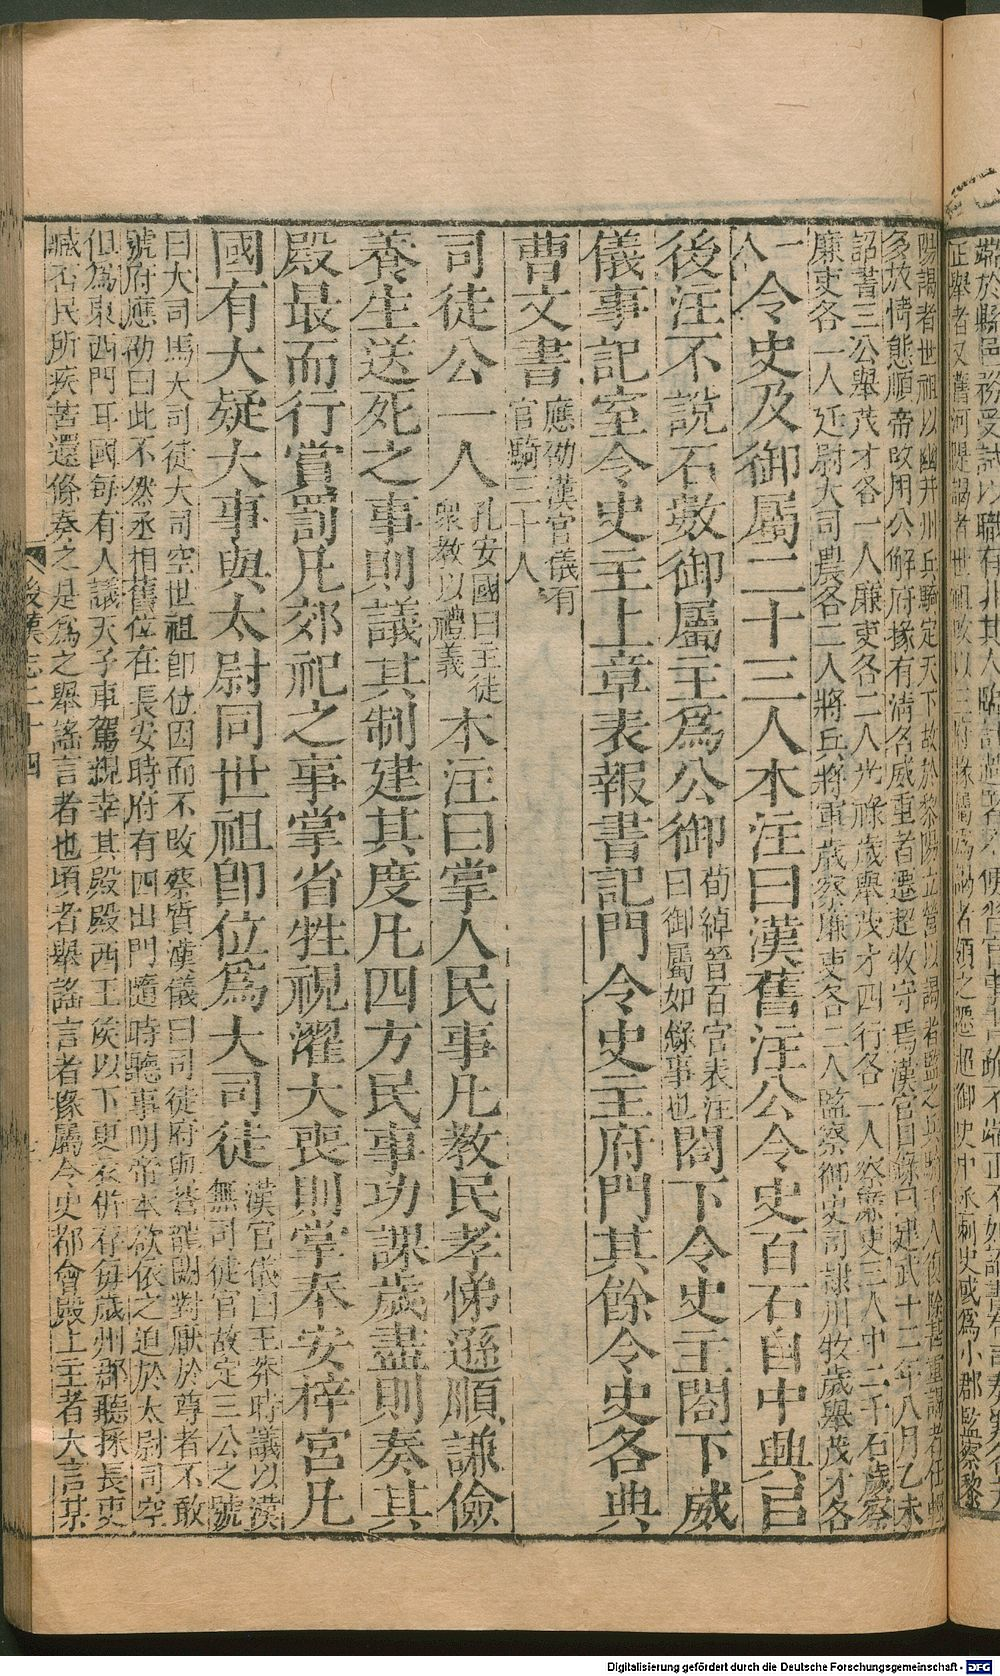 陽謁者世祖以幽并州兵騎定天下故於黎陽立營以謁者監之兵騎千人復除甚重謁者任輕
多放情態順帝改用公解府掾有清名威重者遷超牧守焉漢官目錄曰建武十二年八月乙未
詔書三公舉茂才各一人廉吏各二人光祿歲舉茂才四行各一人察廉吏三人中二千石歲察
廉吏各一人廷尉大司農各二人將兵將軍歲察廉吏各二人監察御史司隸州牧歲舉茂才各
一人
令史及御屬二十三人本注曰漢舊注公令史百石自中興
後注不說石數御屬主爲公御
荀綽晉百官表注
曰御屬如錄事也
閤下令史主閤下威
儀事記室令史主上章表報書記門令史主府門其餘令史各典
曹文書
應劭漢官儀有
官騎三十人
司徒公一人
孔安國曰主徒
衆教以禮義
本注曰掌人民事凡教民孝悌遜順謙儉
養生送死之事則議其制建其度凡四方民事功課歲盡則奏其
殿最而行賞罰凡郊祀之事掌省牲視濯大喪則掌奉安梓宮凡
國有大疑大事與太尉同世祖卽位爲大司徒
漢官儀曰王莽時議以漢
無司徒官故定三公之號
曰大司馬大司徒大司空世祖卽位因而不改蔡質漢儀曰司徒府與蒼龍闕對厭於尊者不敢
號府應劭曰此不然丞相舊位在長安時府有四出門隨時聽事明帝本欲依之迫於太尉司空
但爲東西門耳國每有大議天子車駕親幸其殿殿西王侯以下更衣倂存每歲州郡聽採長吏
臧否民所疾苦還條奏之是爲之舉謠言者也頃者舉謠言者掾屬令史都會殿上主者大言某
後漢志二十四
Digitalisierung gefördert durch die Deutsche Forschungsgemeinschaft - DFG